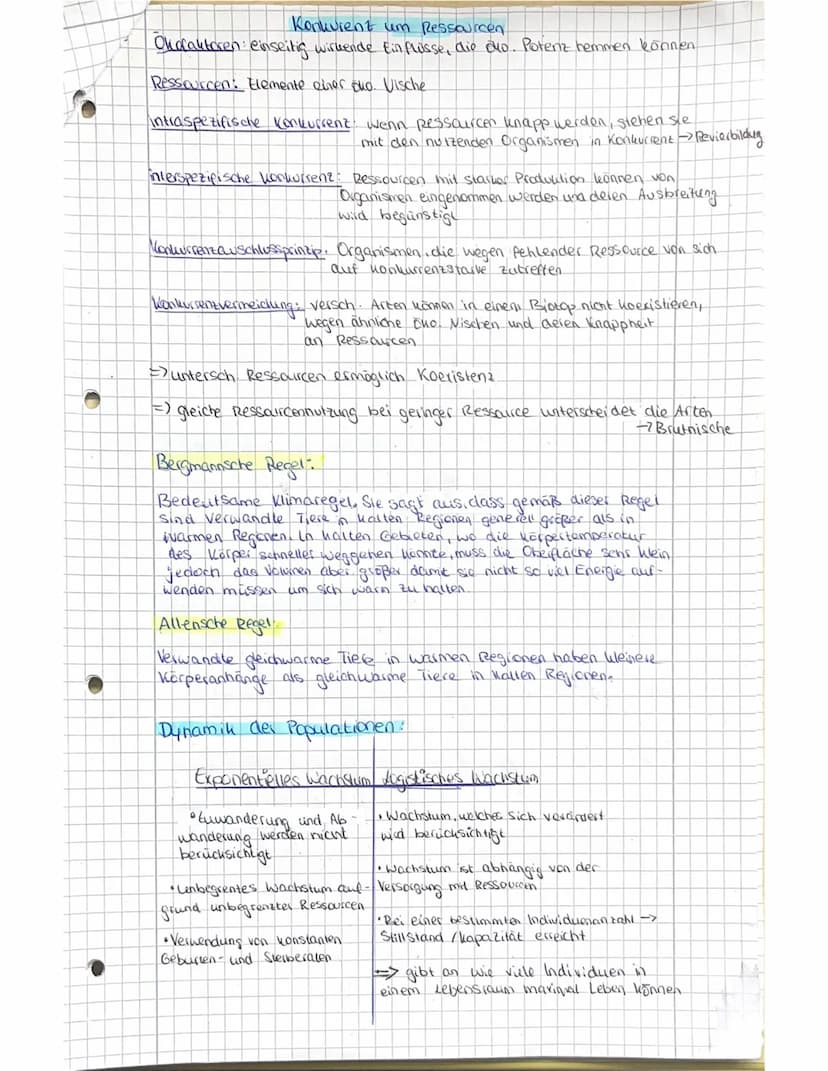 Konkurrenz um Ressourcen
Ökofaktoren: einseitig wirkende Einflüsse, die öko. Potenz hemmen können
Ressourcen: Elemente einer öko. Nische
intraspezifische Konkurrenz: wenn Ressourcen knapp werden, stehen sie
mit den nutzenden Organismen in Konkurrenz → Revierbildung
interspezifische Konkurrenz: Ressourcen mit starker Produktion können von
Organismen eingenommen werden und deren Ausbreitung
wird begünstigt
Konkurrenzauschlussprinzip: Organismen, die wegen fehlender Ressource von sich
auf konkurrenzstarke zutreffen
Konkurrenzvermeidung: versch. Arten können in einem Biotop nicht koexistieren,
wegen ähnliche öko. Nischen und deren Knappheit
an Ressourcen
=> untersch. Ressourcen ermöglich Koexistenz
=> gleiche Ressourcennutzung bei geringer Ressource unterscheidet die Arten
→ Brutnische
Bergmannsche Regel:
Bedeutsame Klimaregel. Sie sagt aus, dass gemäß dieser Regel
sind verwandle Tiere in kalten Regionen generell größer als in
warmen Regionen. In kalten Gebieten, wo die Körpertemperatur
des Körper schneller weggehen könnte, muss die Oberfläche sehr klein
jedoch das Volumen aber größer damit sie nicht so viel Energie auf-
wenden müssen um sich warm zu halten.
Allensche Regel:
Verwandle gleichwarme Tiere in warmen Regionen haben kleinere
Körperanhänge als gleichwarme Tiere in kalten Regionen.
Dynamik der Populationen:
Exponentielles Wachstum
• Zuwanderung und Ab-
wanderung werden nicht
berücksichtigt
• Unbegrentes Wachstum auf-
grund unbegrenzter Ressourcen
• Verwendung von konstanten
Geburten- und Sterberaten
Logistisches Wachstum
• Wachstum, welches sich verändert
wird berücksichtigt
• Wachstum ist abhängig von der
Versorgung mit Ressourcen
• Bei einer bestimmten Individuenanzahl →
Stillstand / Kapazität erreicht
=> gibt an wie viele Individuen in
einem Lebensraum maximal Leben können